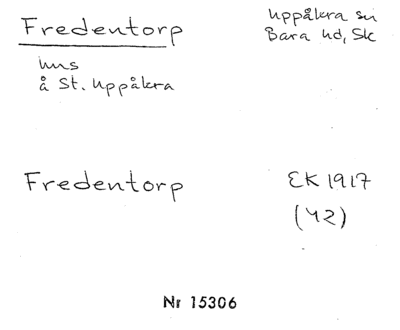 Fredentorp
Uppåkra sn
Bara hd, Sk
hus
å St. Uppåkra
Fredentorp
EK 1917
(42)
Nr 15306